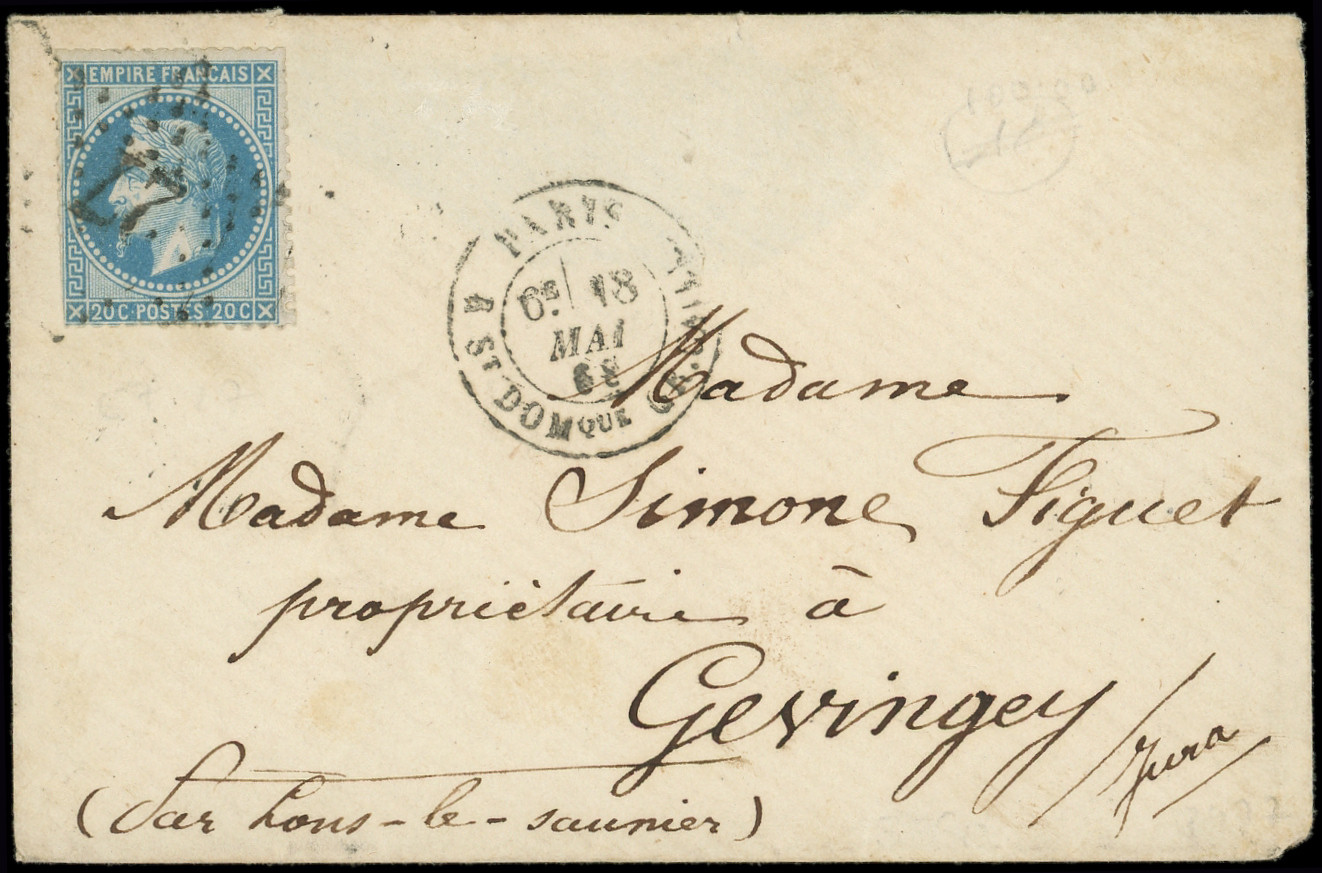 EMPIRE FRANÇAIS
20 C · POSTES · 20 C
PARIS
R. ST DOMQUE
6E 18
MAI
68
Madame
Madame Simone Figuet
propriétaire à
Gevingey
/Jura/
(Par Lons-le-saunier)